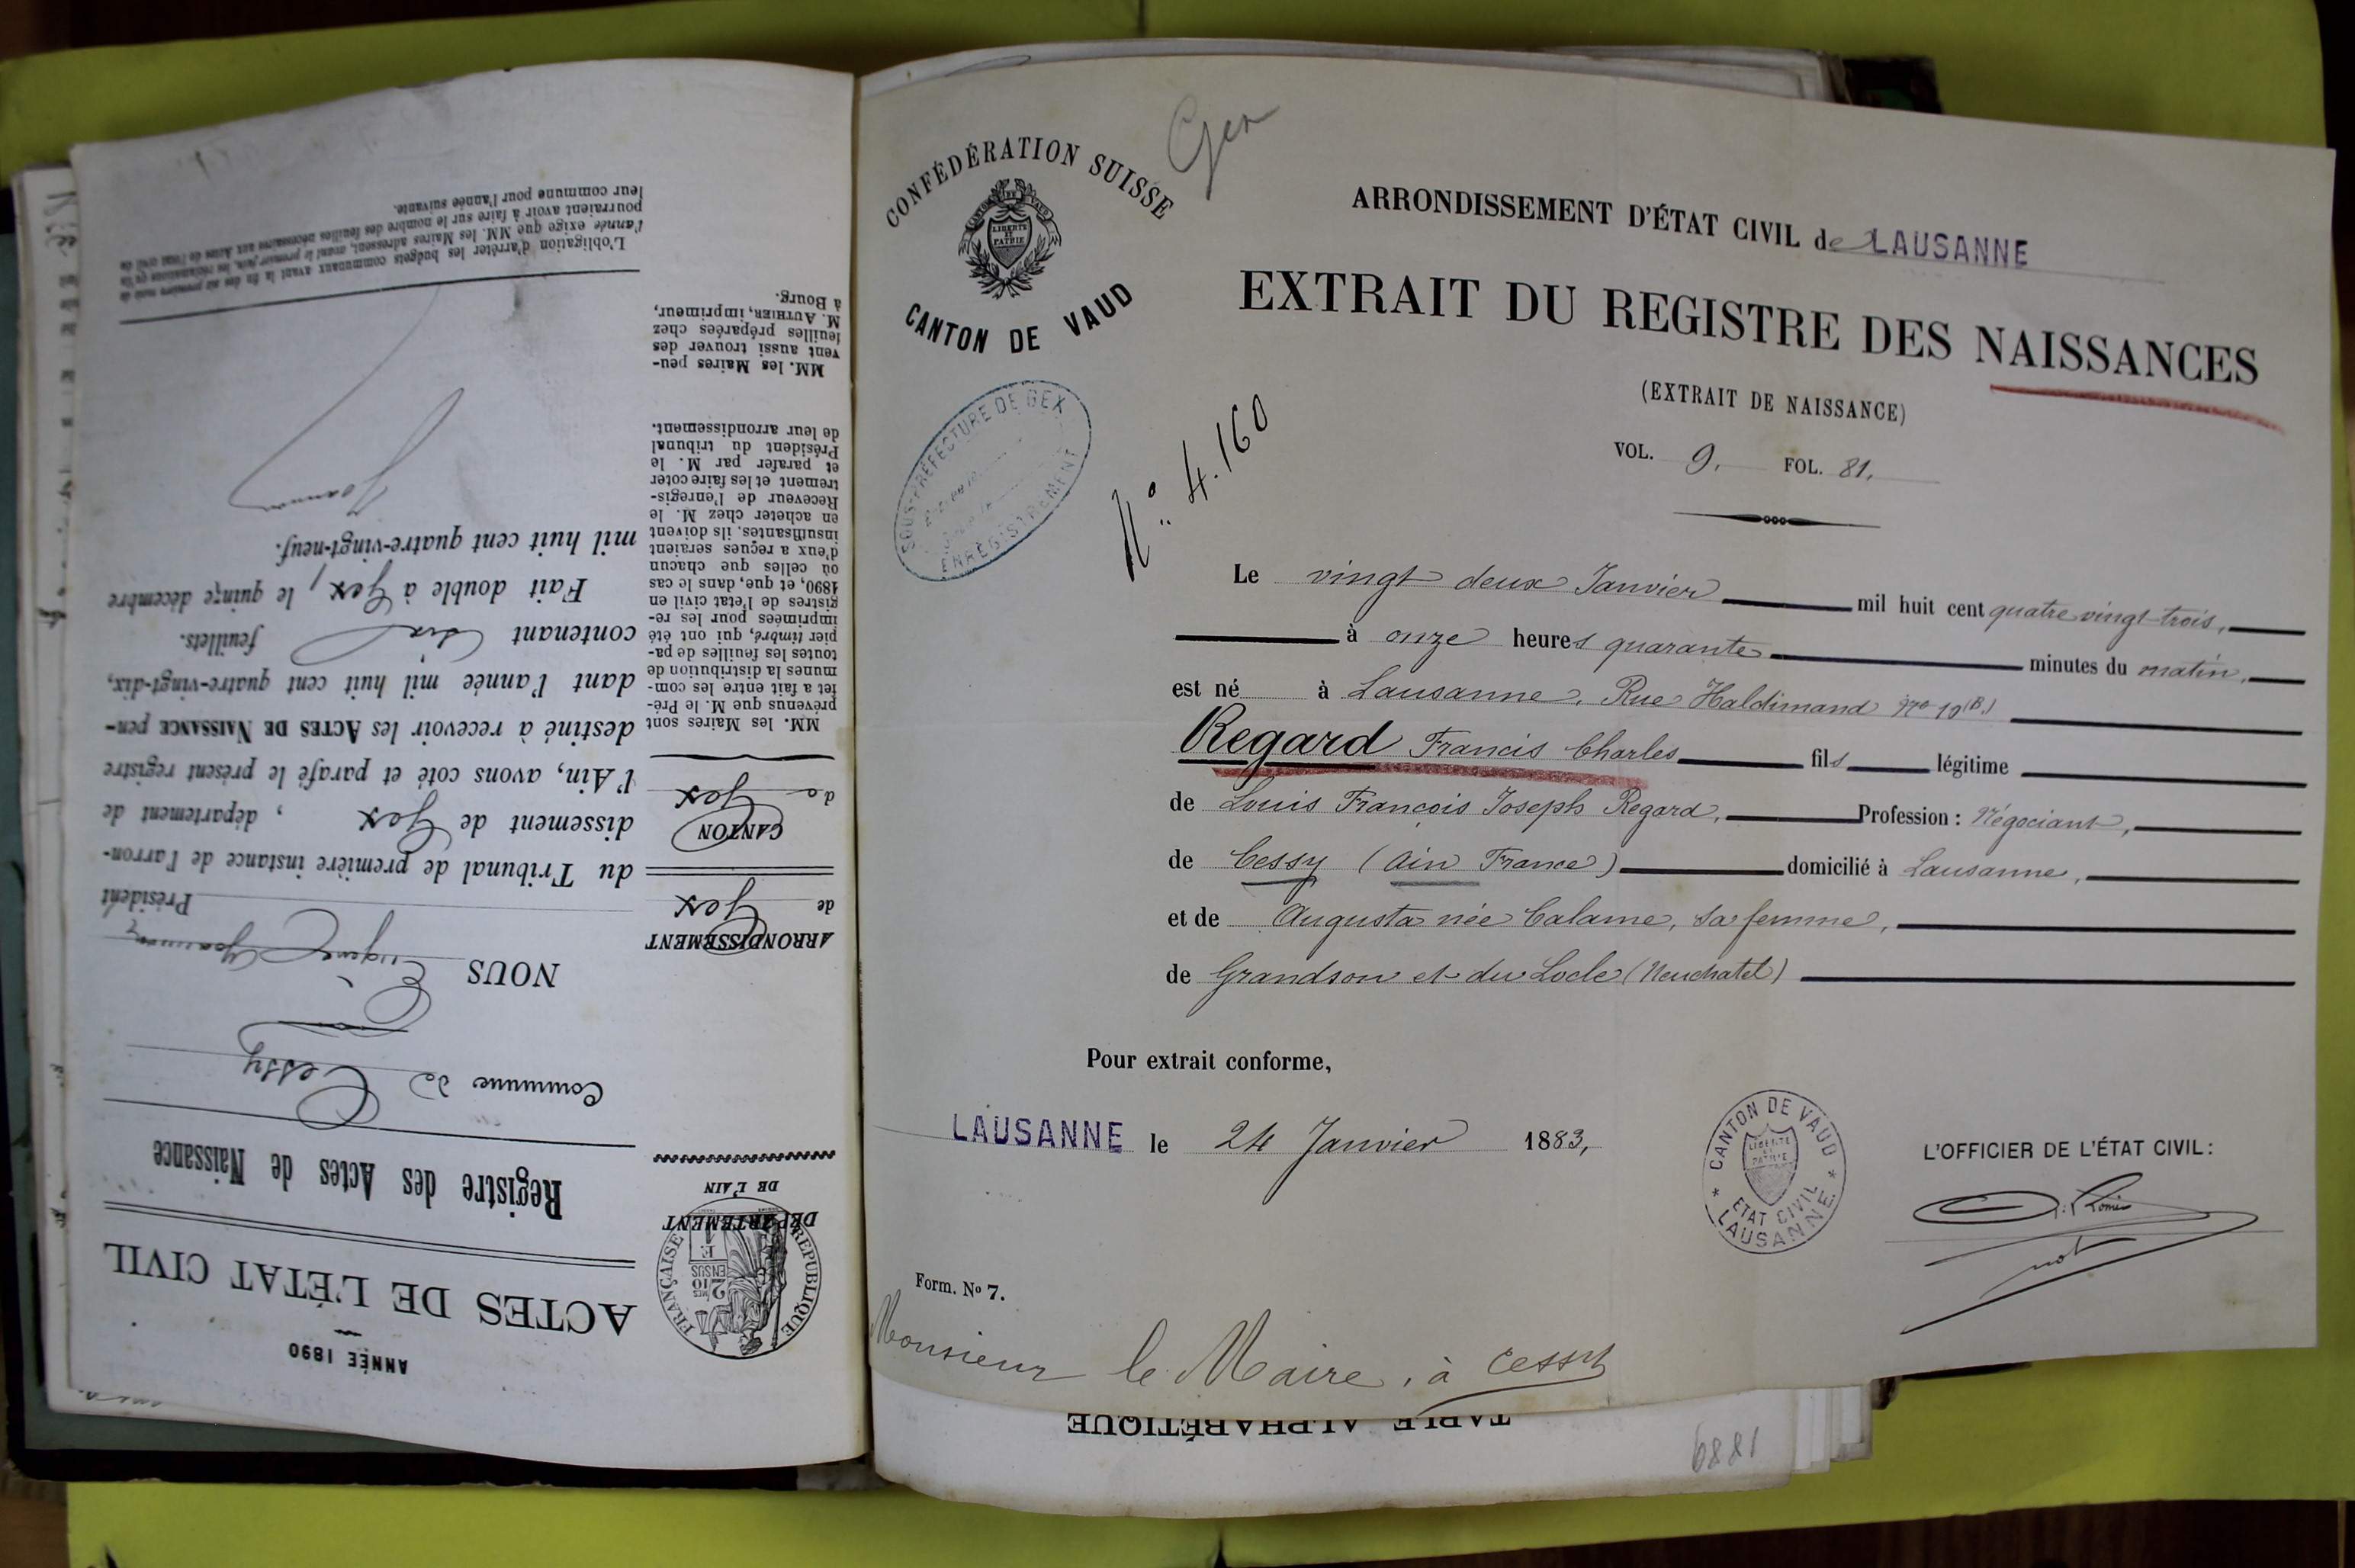 Gex
CONFÉDÉRATION SUISSE
LIBERTÉ
ET
PATRIE
CANTON DE VAUD
ARRONDISSEMENT D'ÉTAT CIVIL de LAUSANNE
EXTRAIT DU REGISTRE DES NAISSANCES
(EXTRAIT DE NAISSANCE)
VOL. 9. FOL. 81.
SOUS-PRÉFECTURE DE GEX
ENREGISTREMENT
No 4.160
Le vingt deux Janvier mil huit cent quatre vingt-trois,
à onze heures quarante minutes du matin,
est né à Lausanne, Rue Haldimand No 10 (B.)
Regard Francis Charles fils légitime
de Louis François Joseph Regard, Profession : Négociant,
de Cessy (Ain France) domicilié à Lausanne,
et de Augusta née Calame, sa femme,
de Grandson et du Locle (Neuchatel)
Pour extrait conforme,
LAUSANNE le 24 Janvier 1883,
CANTON DE VAUD
LIBERTÉ
ET
PATRIE
ETAT CIVIL
LAUSANNE
L'OFFICIER DE L'ÉTAT CIVIL :
Form. No 7.
Monsieur le Maire, à Cessy
TABLE ALPHABÉTIQUE
1889
ANNÉE 1890
ACTES DE L'ÉTAT CIVIL
Registre des Actes de Naissance
Commune de Cessy
NOUS Eugène
Président
du Tribunal de première instance de l'arron-
dissement de Gex, département de
l'Ain, avons coté et parafé le présent registre
destiné à recevoir les ACTES DE NAISSANCE pen-
dant l'année mil huit cent quatre-vingt-dix,
contenant dix feuillets.
Fait double à Gex, le quinze décembre
mil huit cent quatre-vingt-neuf.
RÉPUBLIQUE FRANÇAISE
2/10
EN SUS
DÉPARTEMENT
DE L'AIN
ARRONDISSEMENT
de Gex
CANTON
de Gex
MM. les Maires sont
prévenus que M. le Pré-
fet a fait entre les com-
munes la distribution de
toutes les feuilles de pa-
pier timbré, qui ont été
imprimées pour les re-
gistres de l'état civil en
1890, et que, dans le cas
où celles que chacun
d'eux a reçues seraient
insuffisantes, ils doivent
en acheter chez M. le
Receveur de l'enregis-
trement et les faire coter
et parafer par M. le
Président du tribunal
de leur arrondissement.
MM. les Maires peu-
vent aussi trouver des
feuilles préparées chez
M. AUTHIER, imprimeur,
à Bourg.
L'obligation d'arrêter les budgets communaux avant la fin des six premiers mois de
l'année exige que MM. les Maires adressent, avant le premier juin, les réclamations qu'ils
pourraient avoir à faire sur le nombre des feuilles nécessaires aux Actes de l'état civil de
leur commune pour l'année suivante.